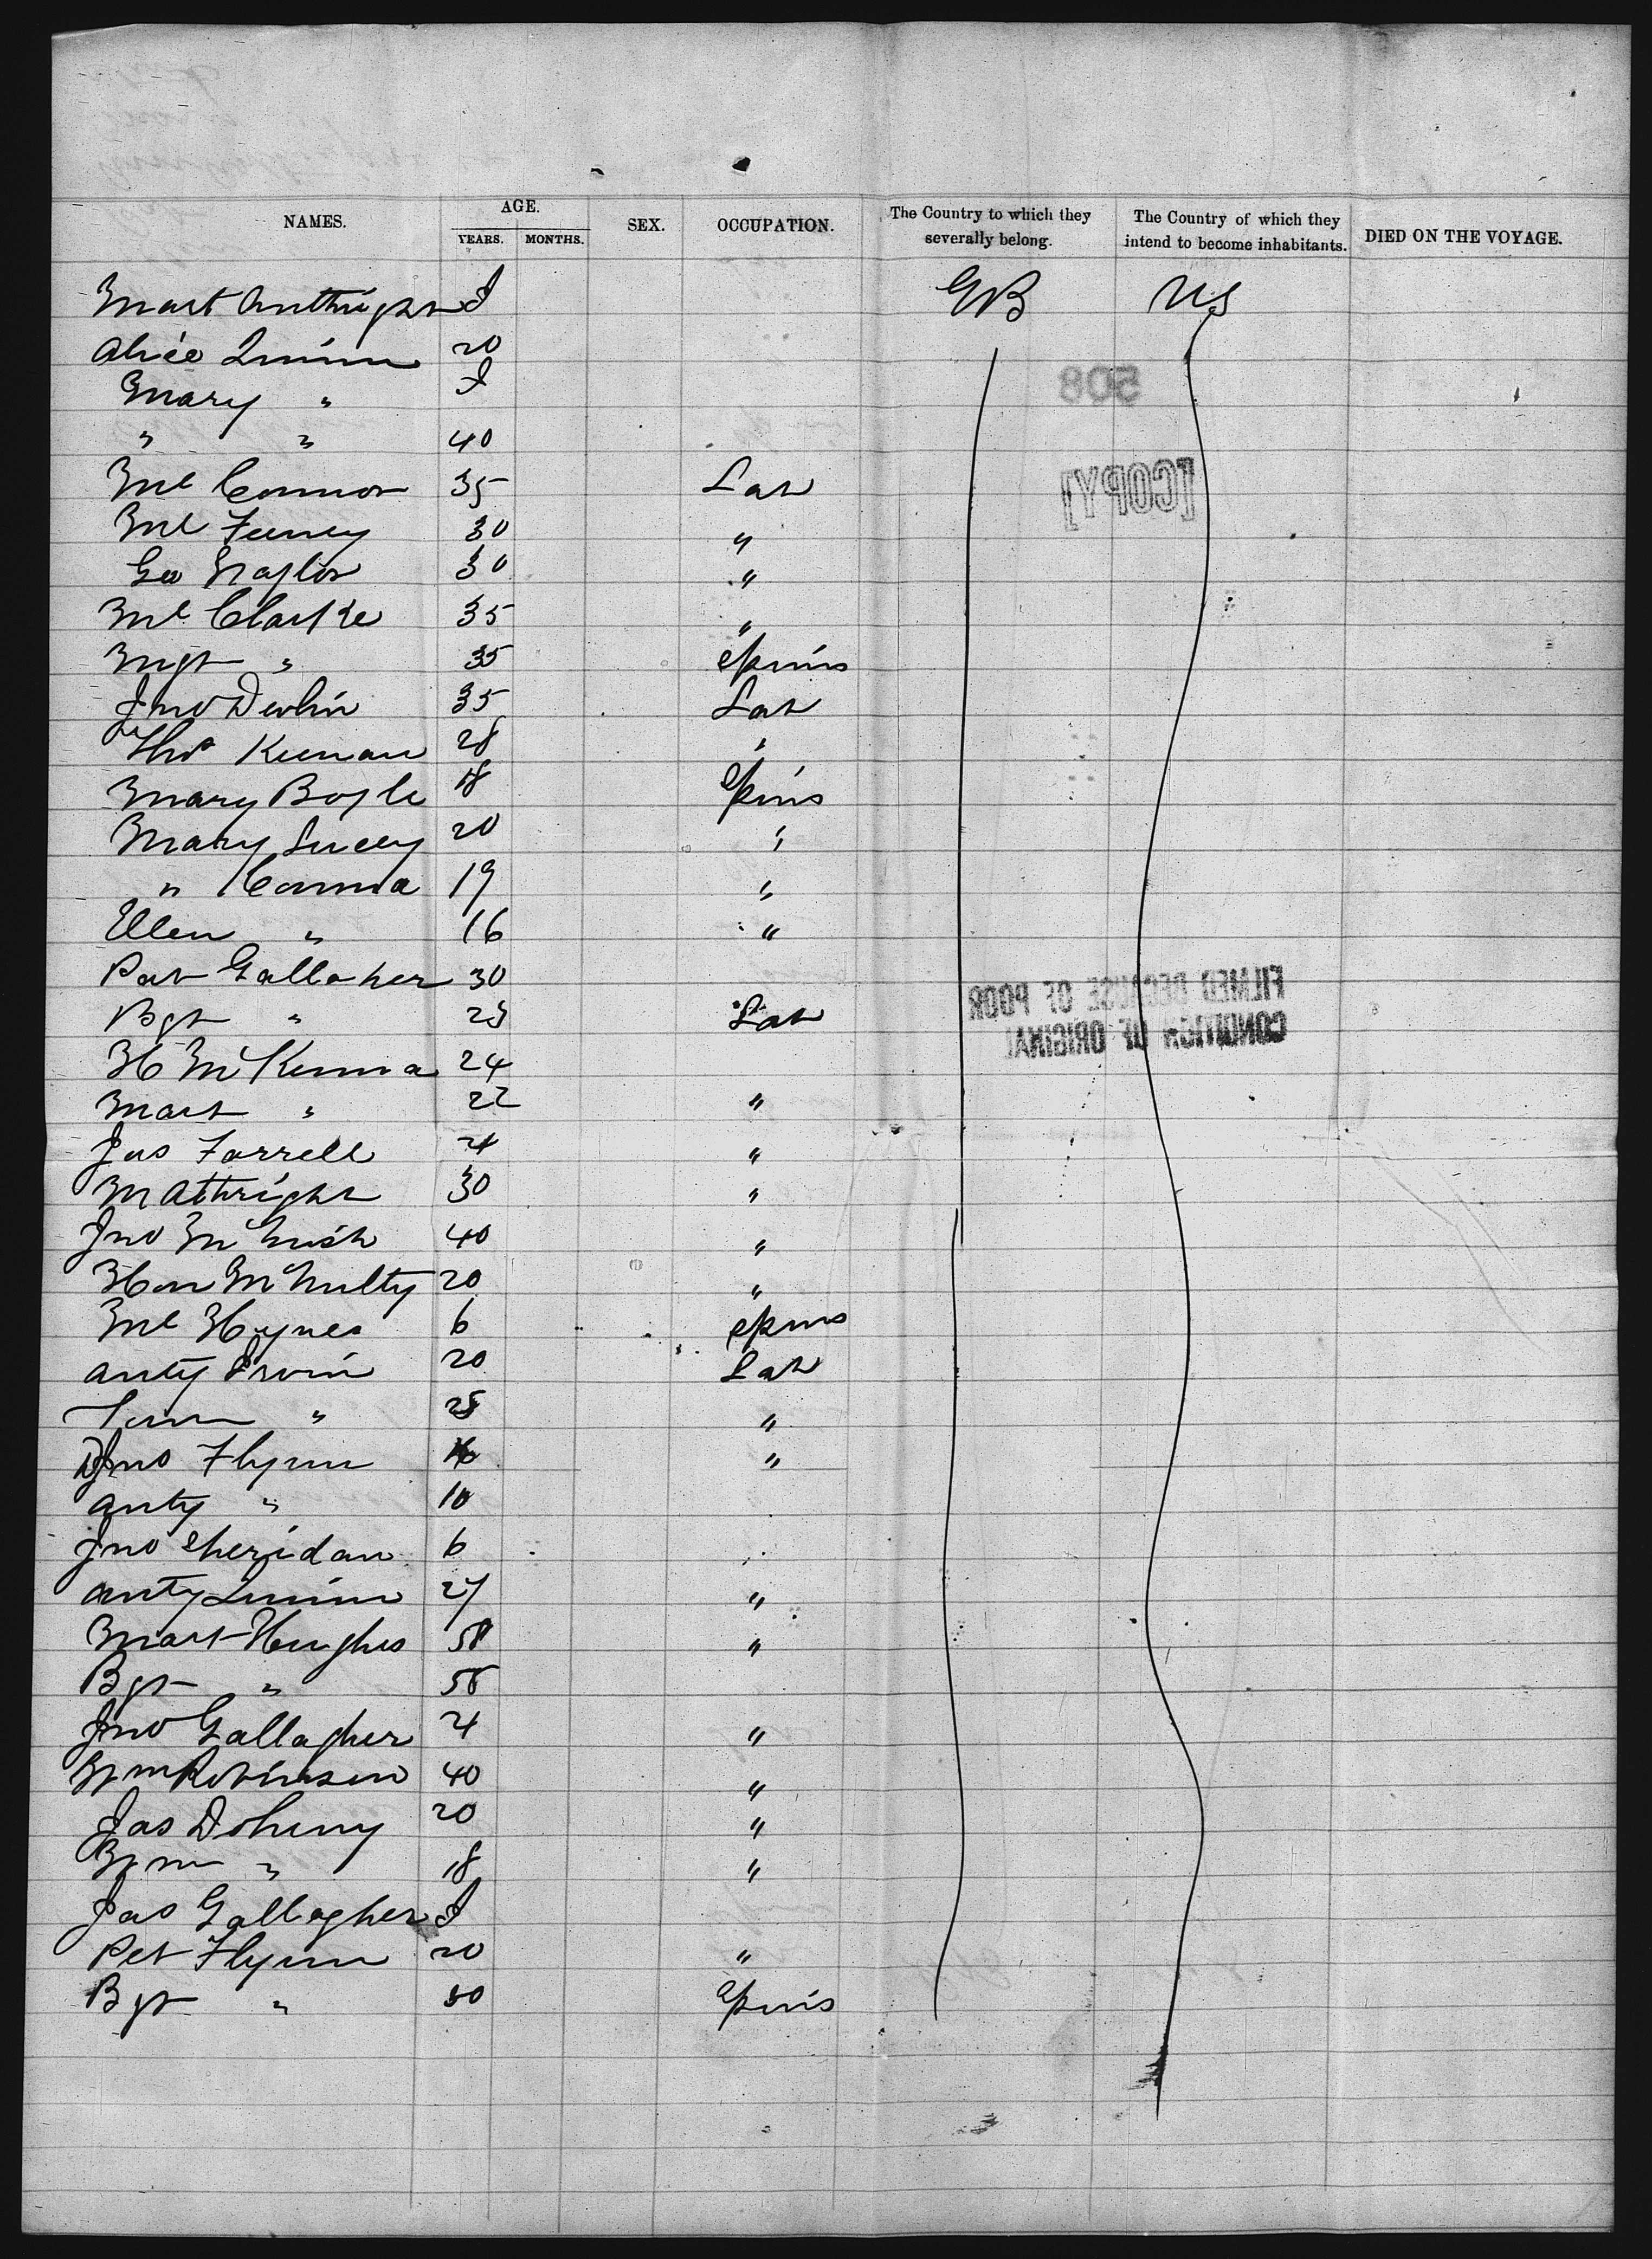 NAMES. AGE. SEX. OCCUPATION. The Country to which they severally belong. The Country of which they intend to become inhabitants. DIED ON THE VOYAGE.
YEARS. MONTHS.
Mart I GB US
Alice Quinn 20
Mary " I
508
" " 40
Ml Connor 35 Lab
[COPY]
Ml Feeney 30 "
Geo Naylor 30 "
Ml Clarke 35 "
Mgt " 35 Spins
Jno Devlin 35 Lab
Thos Keenan 28 "
Mary Boyle 18 Spins
Mary Lucey 20 "
" Canna 19 "
Ellen " 16 "
Pat Gallaher 30
FILMED BECAUSE OF POOR
Bgt " 23 Lab
CONDITION OF ORIGINAL
H McKenna 24
Mart " 22 "
Jas Farrell 24 "
M Attright 30 "
Jno McNish 40 "
Hon McNulty 20 "
Ml Hynes 6 Spins
Anty Irvin 20 Lab
" 25 "
Jno Flynn "
Anty " 10
Jno Sheridan 6
Anty Quinn 27 "
Mart Hughes 58 "
Bgt " 58
Jno Gallagher 24 "
Wm Robinson 40 "
Jas Doheny 20 "
Wm " 18 "
Jas Gallagher I
Pet Flynn 20 "
Bgt " 50 Spins